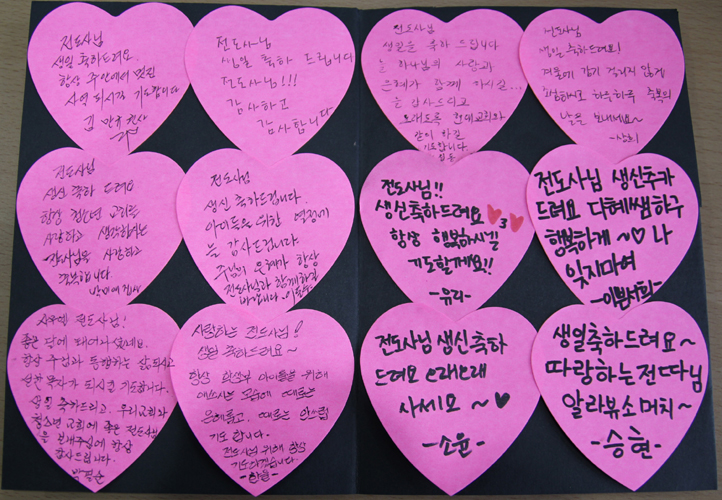 전도사님
생일 축하드려요.
항상 주안에서 멋진
사역 되시길 기도합니다
전도사님
생일 축하 드립니다
전도사님!!!
감사하고
감사합니다
전도사님
생일을 축하 드립니다
늘 하나님의 사랑과
은혜가 함께 하시길...
늘 감사드리고
오래도록 현대교회와
같이 하길
기도합니다
전도사님
생일 축하드려요!
겨울에 감기 걸리지 않게
조심하시고 하루하루 축복의
날을 보내세요~
전도사님
생신 축하 드려요
항상 청소년 교회를
사랑하고 생각하시는
전도사님을 사랑하고
축복합니다
전도사님
생신 축하드립니다.
아이들을 위한 열정에
늘 감사드립니다
주님의 은혜가 항상
전도사님과 함께하길
바랍니다.
전도사님!!
생신축하드려요 3
항상 행복하시길
기도할께요!!
-유리-
전도사님 생신추카
드려요 다혜쌤하구
행복하게~♡ 나
잊지마여
-이쁜서희-
전도사님!
좋은 달에 태어나셨네요.
항상 주님과 동행하는 삶 되시고
선한 목자가 되시길 기도합니다.
생일 축하드리고, 우리교회와
청소년 교회에 좋은 전도사님
을 보내주심에 항상
감사드립니다.
사랑하는 전도사님!
생일 축하드려요~
항상 학생부 아이들을 위해
애쓰시는 모습에 때로는
은혜롭고, 때로는 안쓰럽
기도 합니다.
전도사님 위해 항상
기도하겠습니다.
전도사님 생신축하
드려요 오래오래
사세요 ~ ♥
-소윤-
생일축하드려요~
따랑하는 전따님
알라뷰소머치~
-승현-